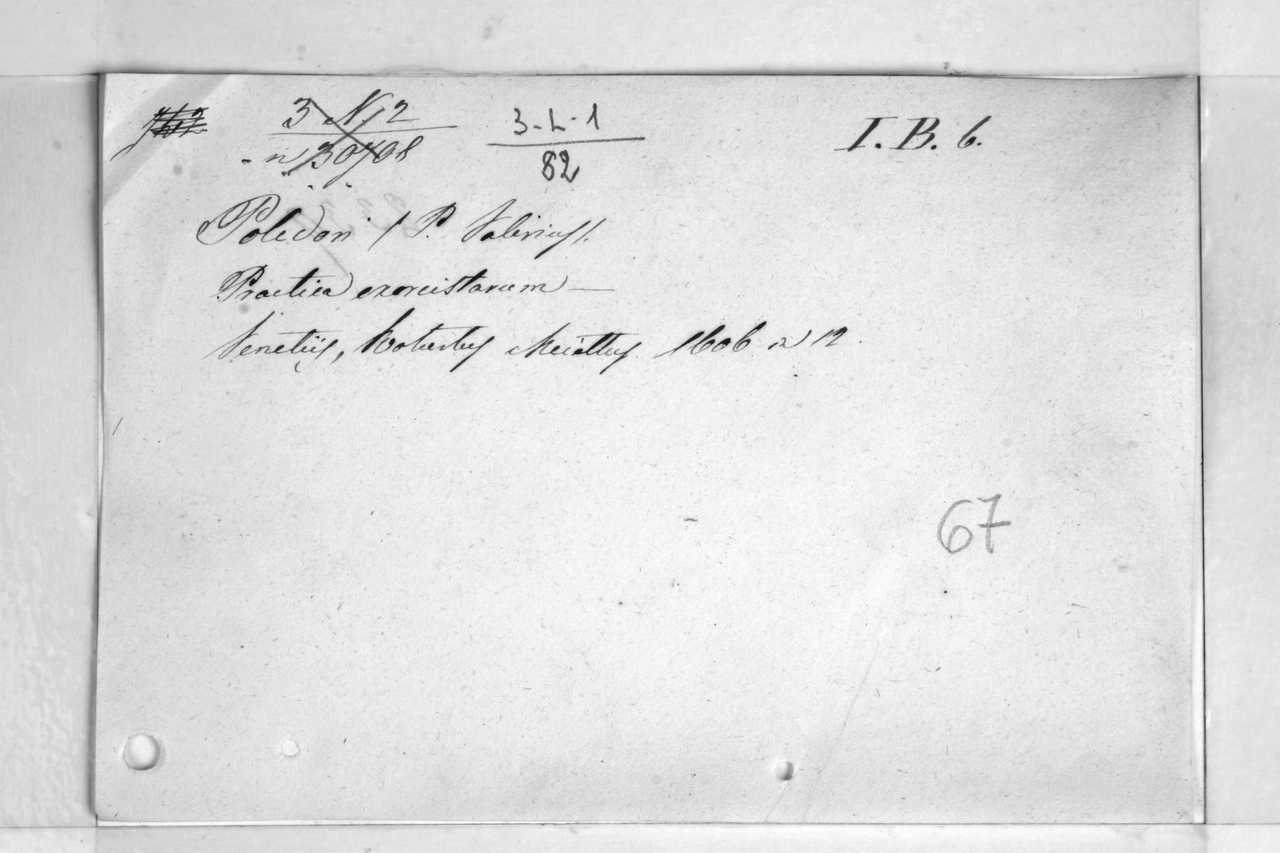 3 N 2
3-L-1
I. B. 6.
n 30708
82
Polidori (P. Valerius).
Practica exorcistarum —
Venetiis, Robertus Meiettus 1606 in 12.
67